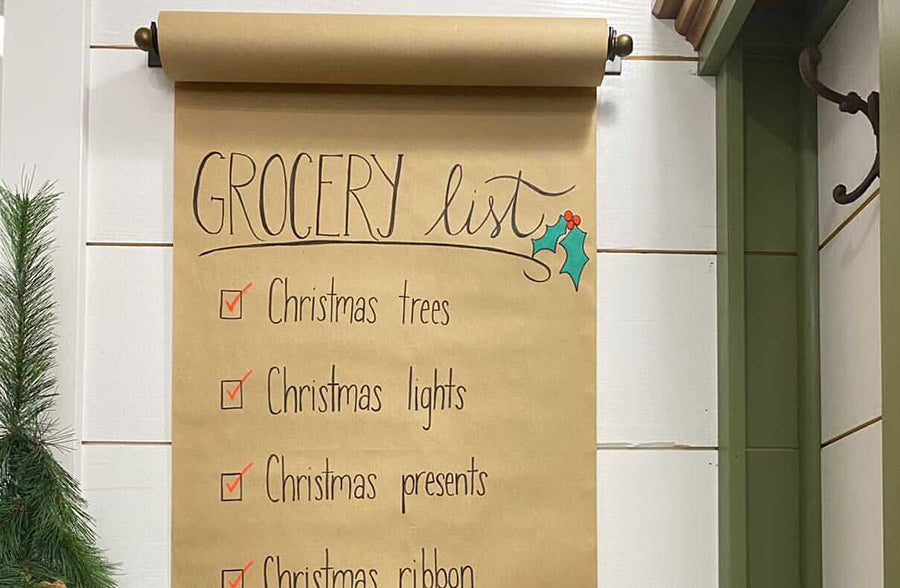 GROCERY list
Christmas trees
Christmas lights
Christmas presents
Christmas ribbon